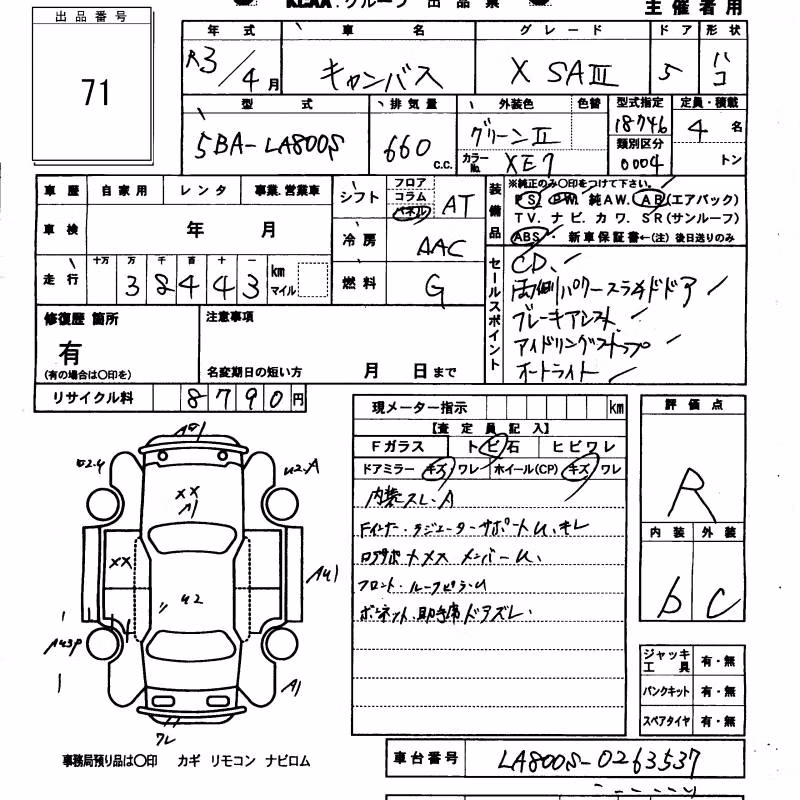 KCAA グループ 出品票
主催者用
出品番号
71
年式 車名 グレード ドア 形状
R3/4月 キャンバス X SAIII 5 ハコ
型式 排気量 外装色 色替 型式指定 定員・積載
5BA-LA800S 660 c.c. グリーンII 18746 4名
カラーNo. XE7 類別区分 0004 トン
車歴 自家用 レンタ 事業.営業車
車検 年 月
走行 十万 万 千 百 十 一 km マイル
38443
シフト フロア コラム パネル AT
冷房 AAC
燃料 G
装備品 ※純正のみ○印をつけて下さい。
PS PW. 純AW. AB(エアバック)
TV. ナビ. カワ. SR(サンルーフ)
ABS・ 新車保証書←(注)後日送りのみ
セールスポイント
CD.
両側パワースライドドア
ブレーキアシスト
アイドリングストップ
オートライト
修復歴 箇所 注意事項
有
(有の場合は○印を) 名変期日の短い方 月 日まで
リサイクル料 8790円
現メーター指示 km
【査定員記入】
Fガラス トビ石 ヒビワレ
ドアミラー キズ ワレ ホイール(CP) キズ ワレ
内装スレ.A
Fインナー.ラジエーターサポートU.キレ
メンバーU.
フロント.ルーフピラーU
ボンネット.助手席ドアズレ.
評価点
R
内装 外装
b C
U2.A
XX
A1
XX
U2
AU1
A1
ワレ
ジャッキ工具 有・無
パンクキット 有・無
スペアタイヤ 有・無
事務局預り品は○印 カギ リモコン ナビロム
車台番号 LA800S-0263537